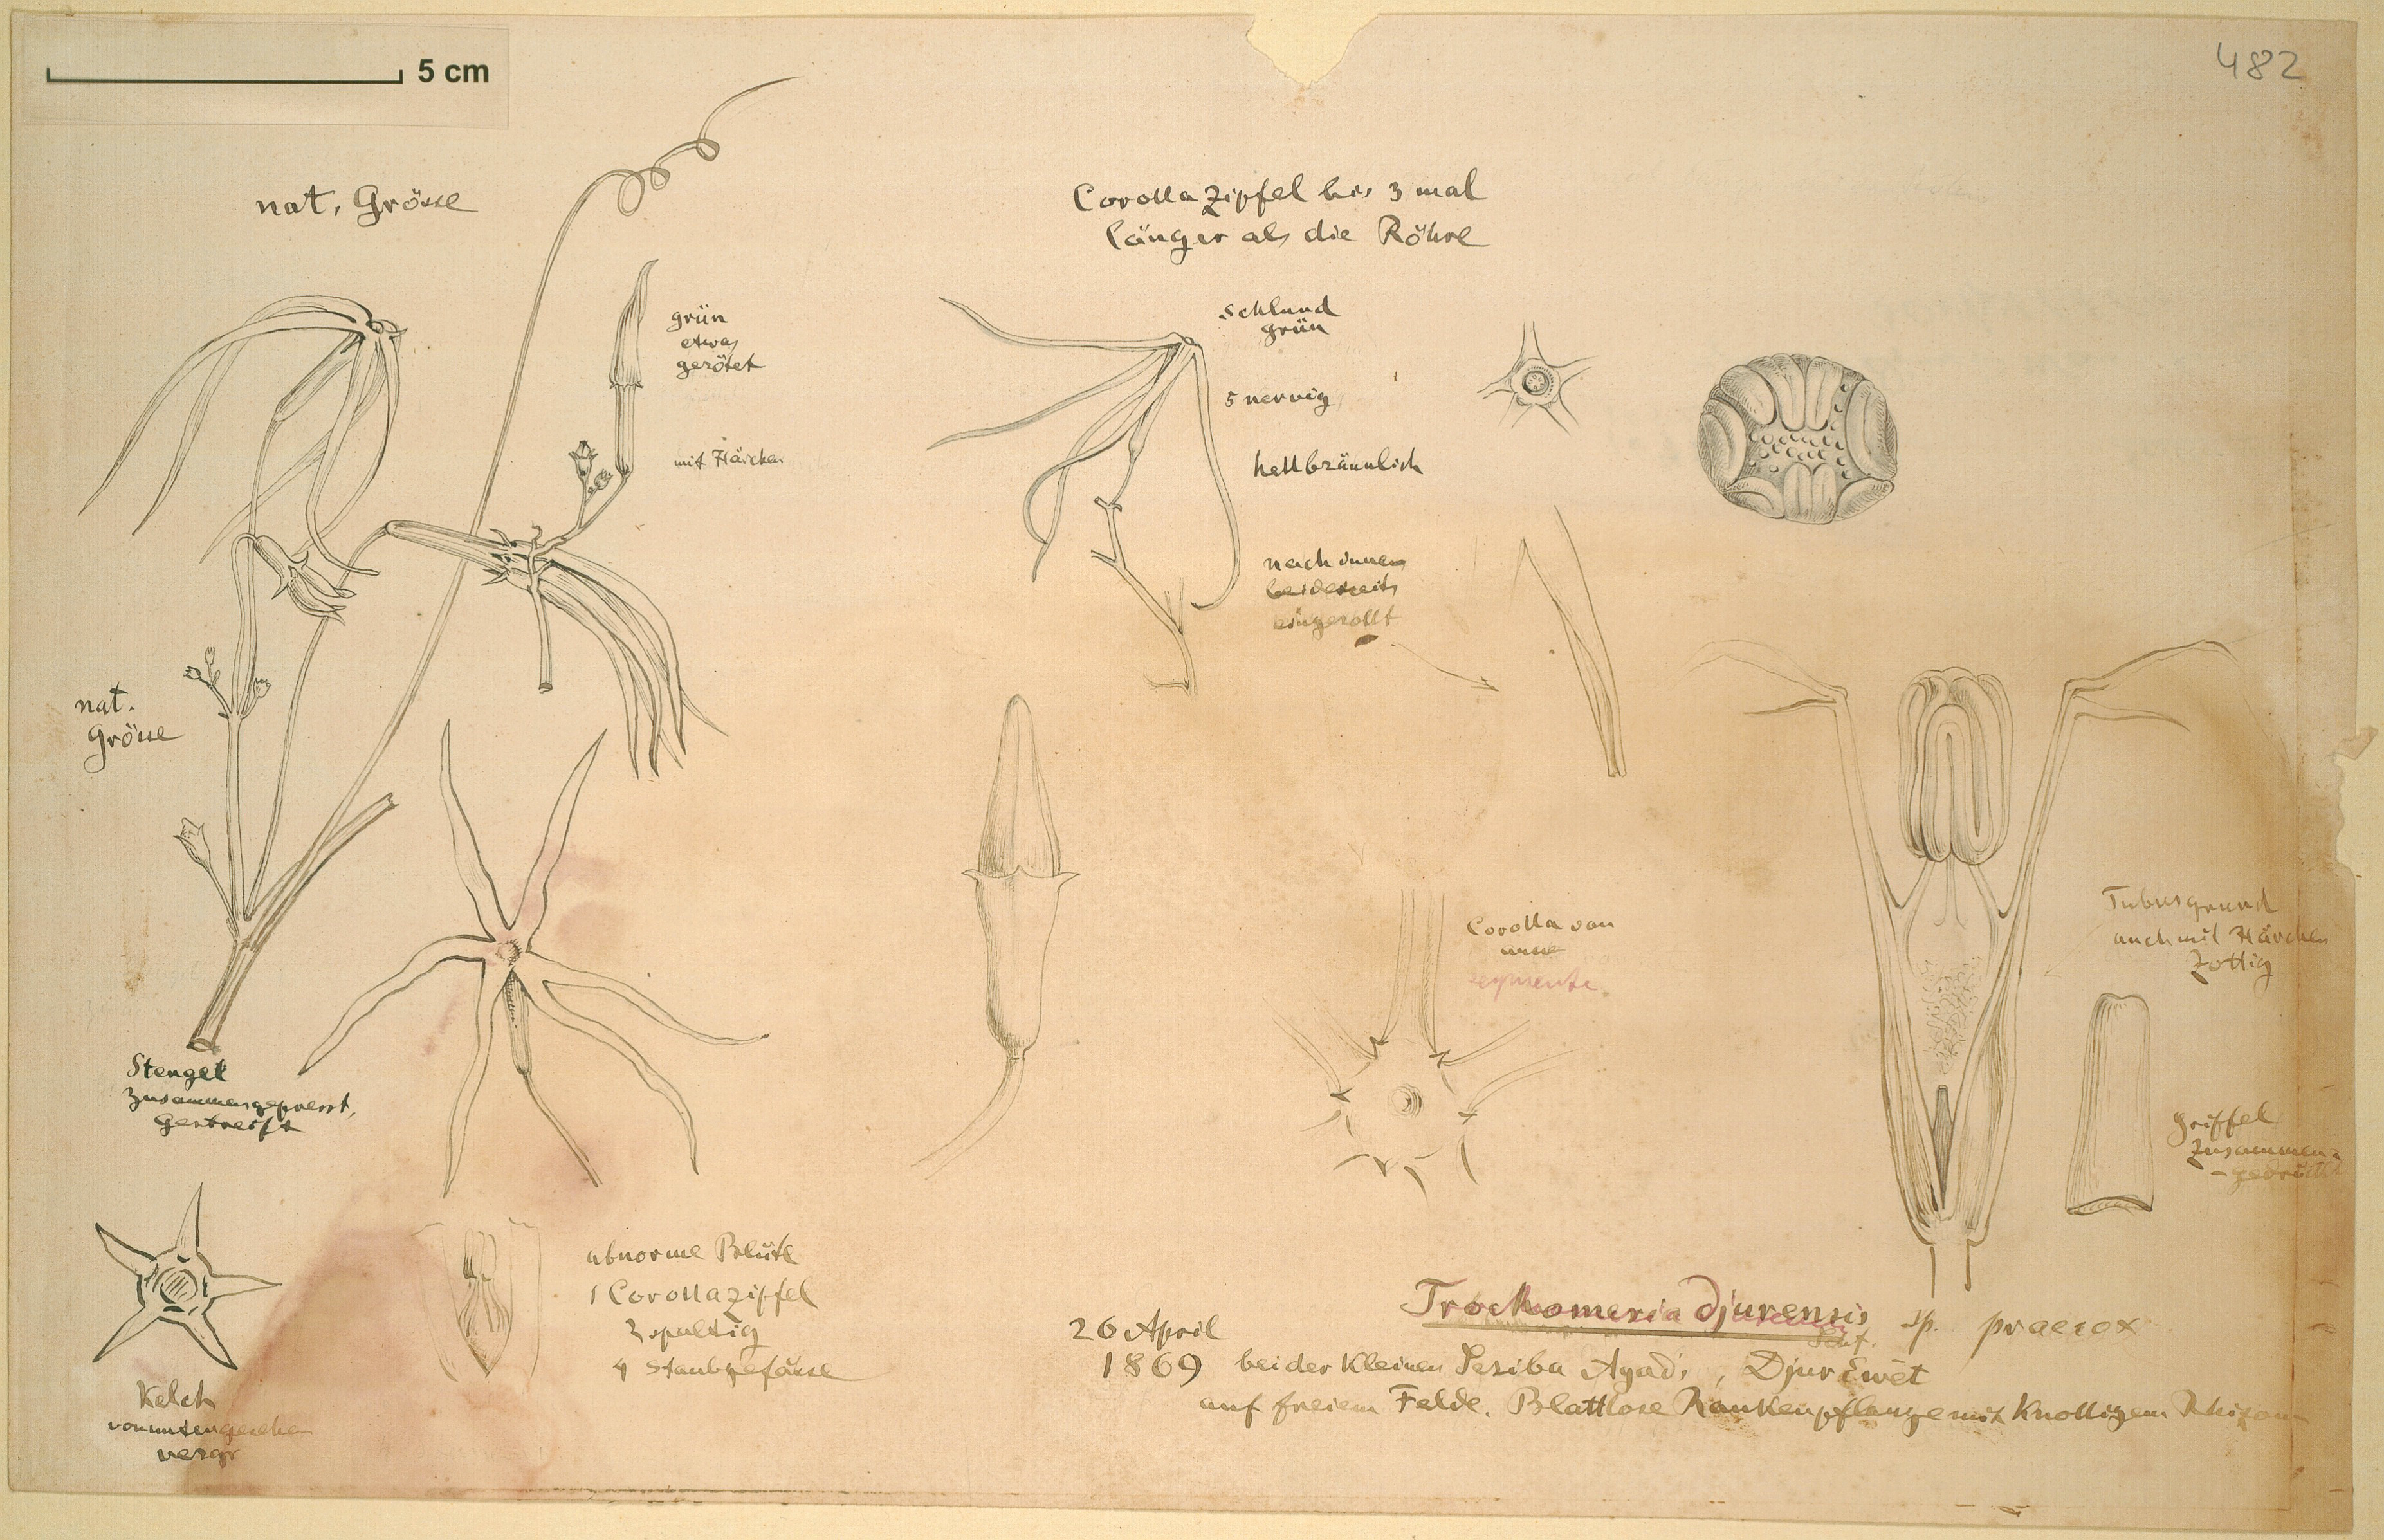 5 cm
482
nat. Grösse
Corolla Zipfel bis 3 mal
länger als die Röhre
grün
etwas
gerötet
mit Härchen
Schlund
grün
5 nervig
hellbräunlich
nach innen
beiderseits
eingerollt
nat.
Grösse
Stengel
zusammengepresst,
gestreift
Corolla von
innen
segmente.
Tubusgrund
auch mit Härchen
zottig
Griffel
zusammen-
-gedrückt
Kelch
von unten gesehen
vergr
abnorme Blüte
1 Corollazipfel
2 spaltig
4 Staubgefässe
Trochomeria djurensis sp. praecox
Schf.
26 April
1869 bei der kleinen Seriba Agad, Djur Ewet
auf freiem Felde. Blattlose Rankenpflanze mit knolligem Rhizom